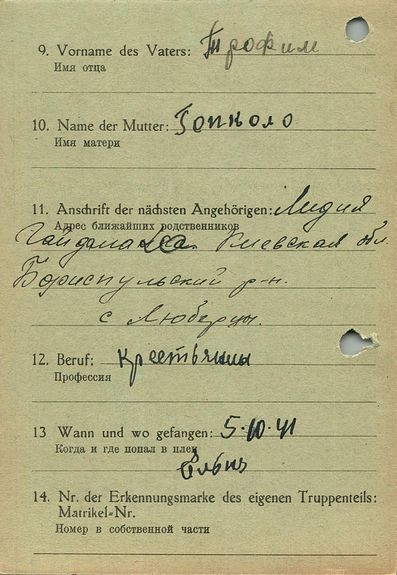 9. Vorname des Vaters: Трофим
Имя отца
10. Name der Mutter: Гопколо
Имя матери
11. Anschrift der nächsten Angehörigen: Лидия
Адрес ближайших родственников
Киевская обл.
Бориспульский р-н.
с Люберцы.
12. Beruf: крестьянин
Профессия
13 Wann und wo gefangen: 5·10·41
Когда и где попал в плен
14. Nr. der Erkennungsmarke des eigenen Truppenteils:
Matrikel-Nr.
Номер в собственной части